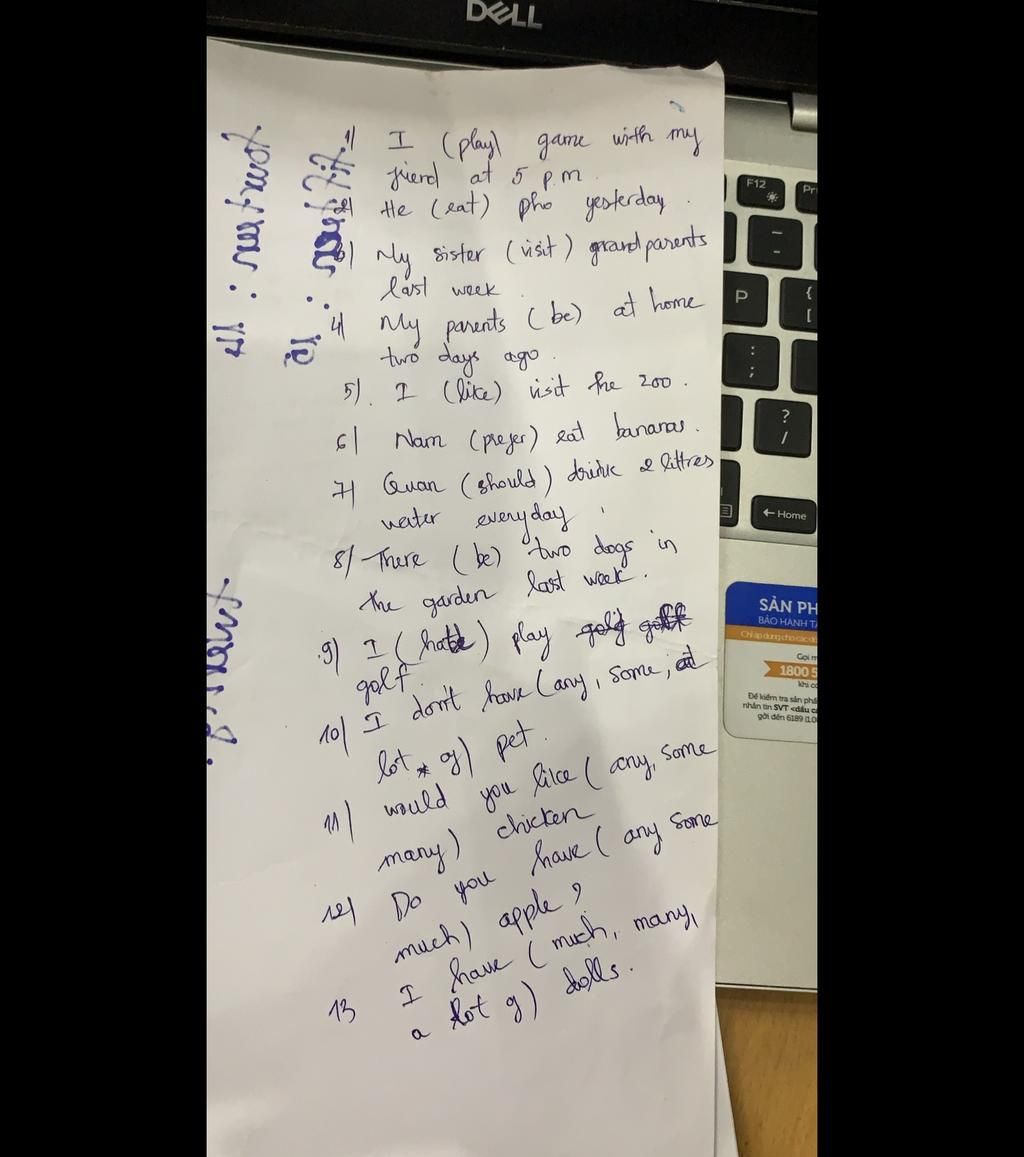 DELL
1) I (play) game with my
friend at 5 p.m.
2) He (eat) pho yesterday.
3) My sister (visit) grandparents
last week.
4) My parents (be) at home
two days ago.
5) I (like) visit the zoo.
6) Nam (prefer) eat bananas.
7) Quan (should) drink 2 littres
water everyday.
8) There (be) two dogs in
the garden last week.
9) I (hate) play
golf.
10) I don't have (any, some, a
lot of) pet.
11) would you like (any, some
many) chicken
12) Do you have (any some
much) apple?
13 I have (much, many,
a lot of) dolls.
F12
Pr
-
P
{
[
:
;
?
/
← Home
SẢN PH
BẢO HÀNH TẠ
Chỉ áp dụng cho các dò
Gọi m
1800 5
khi có
Để kiểm tra sản phẩ
nhắn tin SVT <dấu c
gởi đến 6189 (1.0